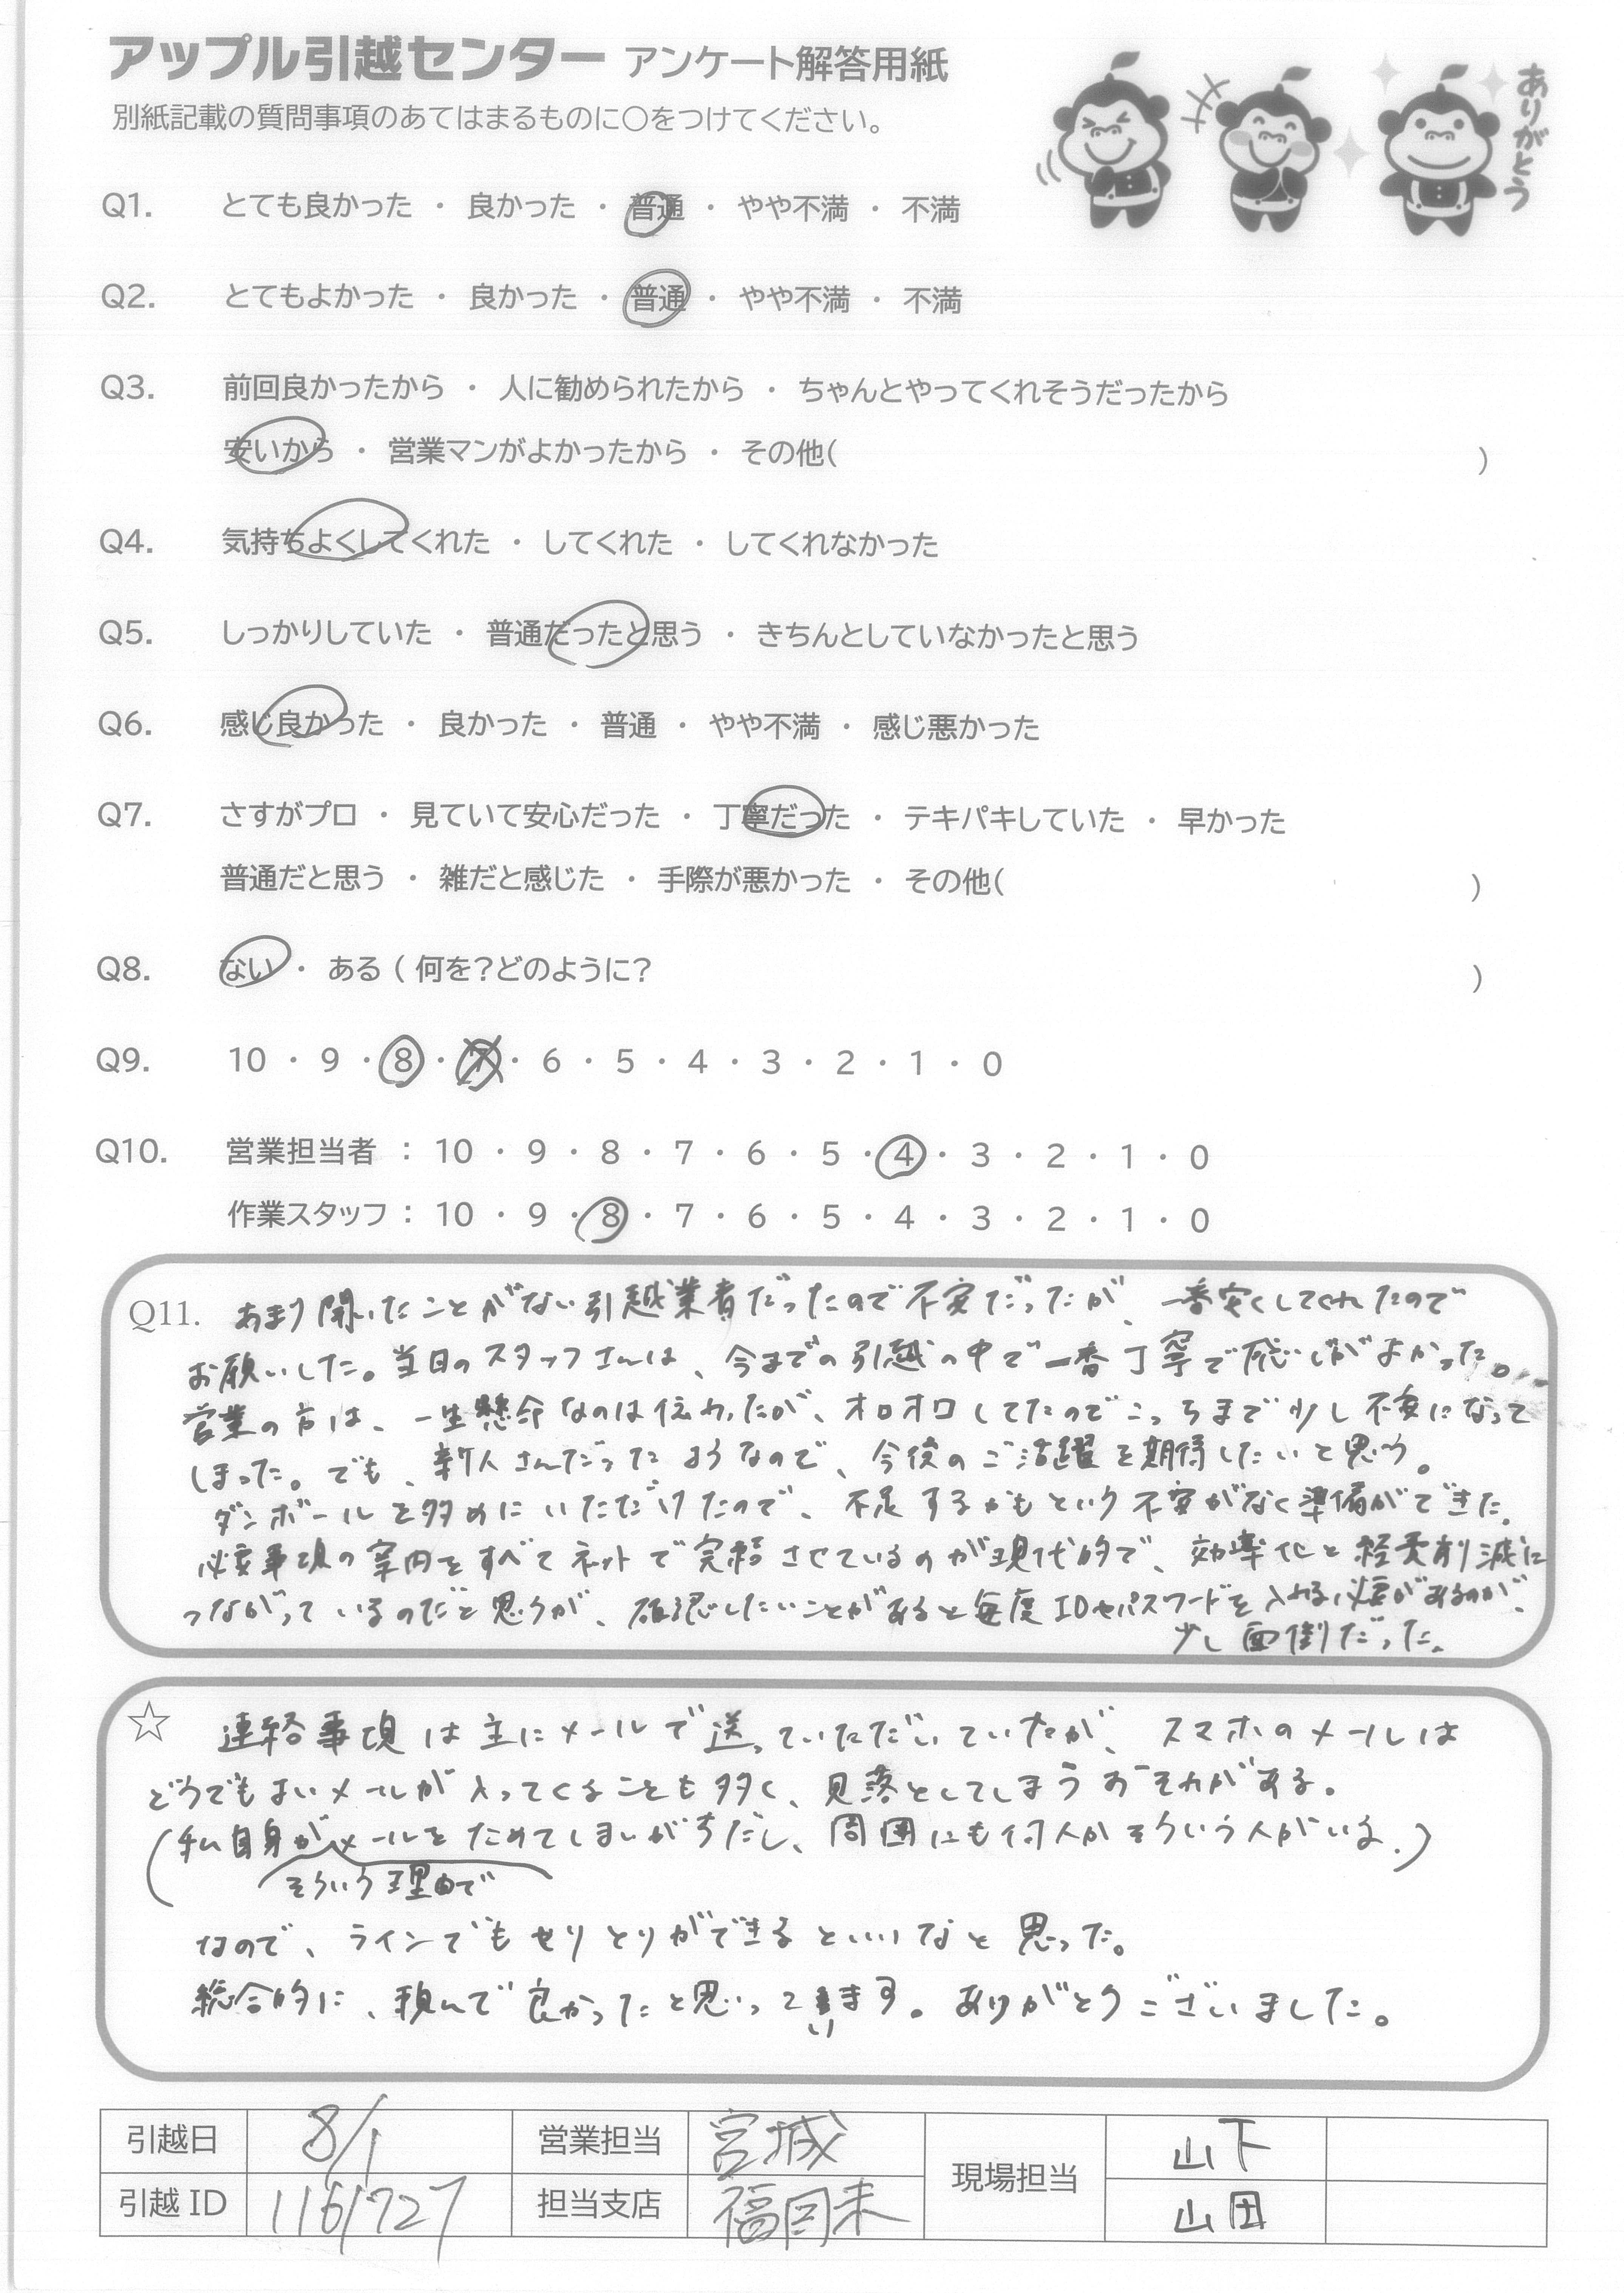 アップル引越センター アンケート解答用紙
別紙記載の質問事項のあてはまるものに○をつけてください。
ありがとう
Q1. とても良かった ・ 良かった ・ 普通 ・ やや不満 ・ 不満
Q2. とてもよかった ・ 良かった ・ 普通 ・ やや不満 ・ 不満
Q3. 前回良かったから ・ 人に勧められたから ・ ちゃんとやってくれそうだったから
安いから ・ 営業マンがよかったから ・ その他( )
Q4. 気持ちよくしてくれた ・ してくれた ・ してくれなかった
Q5. しっかりしていた ・ 普通だったと思う ・ きちんとしていなかったと思う
Q6. 感じ良かった ・ 良かった ・ 普通 ・ やや不満 ・ 感じ悪かった
Q7. さすがプロ ・ 見ていて安心だった ・ 丁寧だった ・ テキパキしていた ・ 早かった
普通だと思う ・ 雑だと感じた ・ 手際が悪かった ・ その他( )
Q8. ない ・ ある ( 何を?どのように? )
Q9. 10 ・ 9 ・ 8 ・ 7 ・ 6 ・ 5 ・ 4 ・ 3 ・ 2 ・ 1 ・ 0
Q10. 営業担当者 : 10 ・ 9 ・ 8 ・ 7 ・ 6 ・ 5 ・ 4 ・ 3 ・ 2 ・ 1 ・ 0
作業スタッフ : 10 ・ 9 ・ 8 ・ 7 ・ 6 ・ 5 ・ 4 ・ 3 ・ 2 ・ 1 ・ 0
Q11. あまり聞いたことがない引越業者だったので不安だったが、一番安くしてくれたので
お願いした。当日のスタッフさんは、今までの引越の中で一番丁寧で感じがよかった。
営業の方は、一生懸命なのは伝わったが、オロオロしてたのでこっちまで少し不安になって
しまった。でも、新人さんだったようなので、今後のご活躍を期待したいと思う。
ダンボールを多めにいただけたので、不足するかもという不安がなく準備ができた。
必要事項の案内をすべてネットで完結させているのが現代的で、効率化と経費削減に
つながっているのだと思うが、確認したいことがあると毎度IDやパスワードを入れる必要があるのが、
少し面倒だった。
☆ 連絡事項は主にメールで送っていただいていたが、スマホのメールは
どうでもよいメールが入ってくることも多く、見落としてしまうおそれがある。
(私自身がメールをためてしまいがちだし、周囲にも何人かそういう人がいる。)
そういう理由で
なので、ラインでもやりとりができるといいなと思った。
総合的に、頼んで良かったと思っています。ありがとうございました。
引越日 8/1 営業担当 宮城 現場担当 山下
引越 ID 1161727 担当支店 福岡東 山田